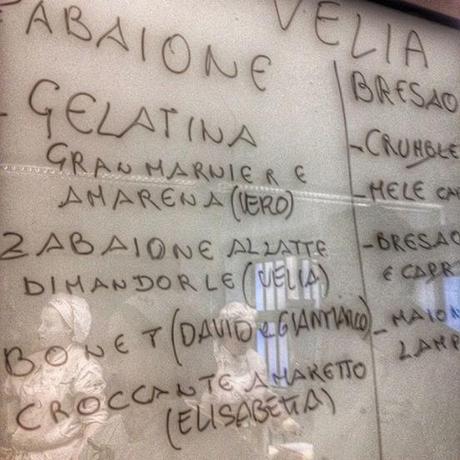 ABAIONE
- GELATINA
GRAN MARNIER E
AMARENA (VERO)
ZABAIONE AL LATTE
DI MANDORLE (VELIA)
BONET (DAVID e GIANFRANCO)
CROCCANTE AMARETTO
(ELISABETTA)
VELIA
BRESAO
- CRUMBLE
- MELE CA
- BRESAO
E CAPR
- MAION
LAMP